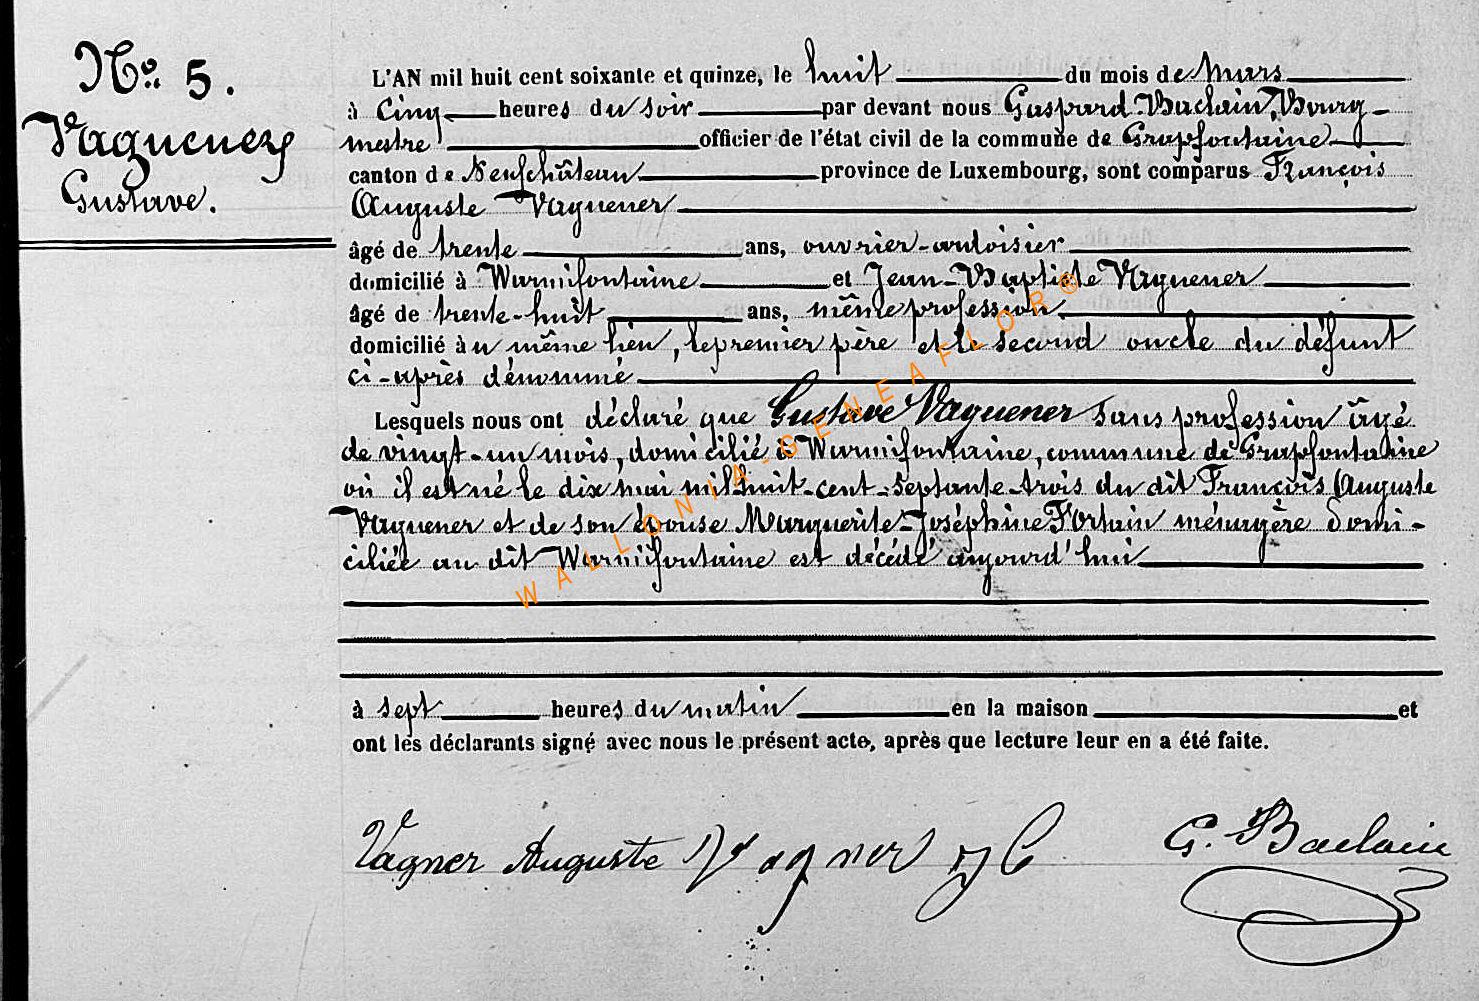 No. 5.
Vaguener
Gustave.
L'AN mil huit cent soixante et quinze, le huit du mois de Mars
à cinq heures du soir par devant nous Gaspard Baclain, Bourg-
mestre officier de l'état civil de la commune de Grapfontaine
canton de Neufchâteau province de Luxembourg, sont comparus François
Auguste Vaguener
âgé de trente ans, ouvrier-ardoisier
domicilié à Warmifontaine et Jean-Baptiste Vaguener
âgé de trente-huit ans, même profession
domicilié au même lieu, le premier père et le second oncle du défunt
ci-après dénommé
Lesquels nous ont déclaré que Gustave Vaguener sans profession âgé
de vingt-un mois, domicilié à Warmifontaine, commune de Grapfontaine
où il est né le dix mai mil huit-cent-septante-trois du dit François Auguste
Vaguener et de son épouse Marguerite-Joséphine Fortain ménagère domi-
ciliée au dit Warmifontaine est décédé aujourd'hui
à sept heures du matin en la maison et
ont les déclarants signé avec nous le présent acte, après que lecture leur en a été faite.
Vagner Auguste Vagner G. Baclain
WALLONIA-GENEAFLOR®